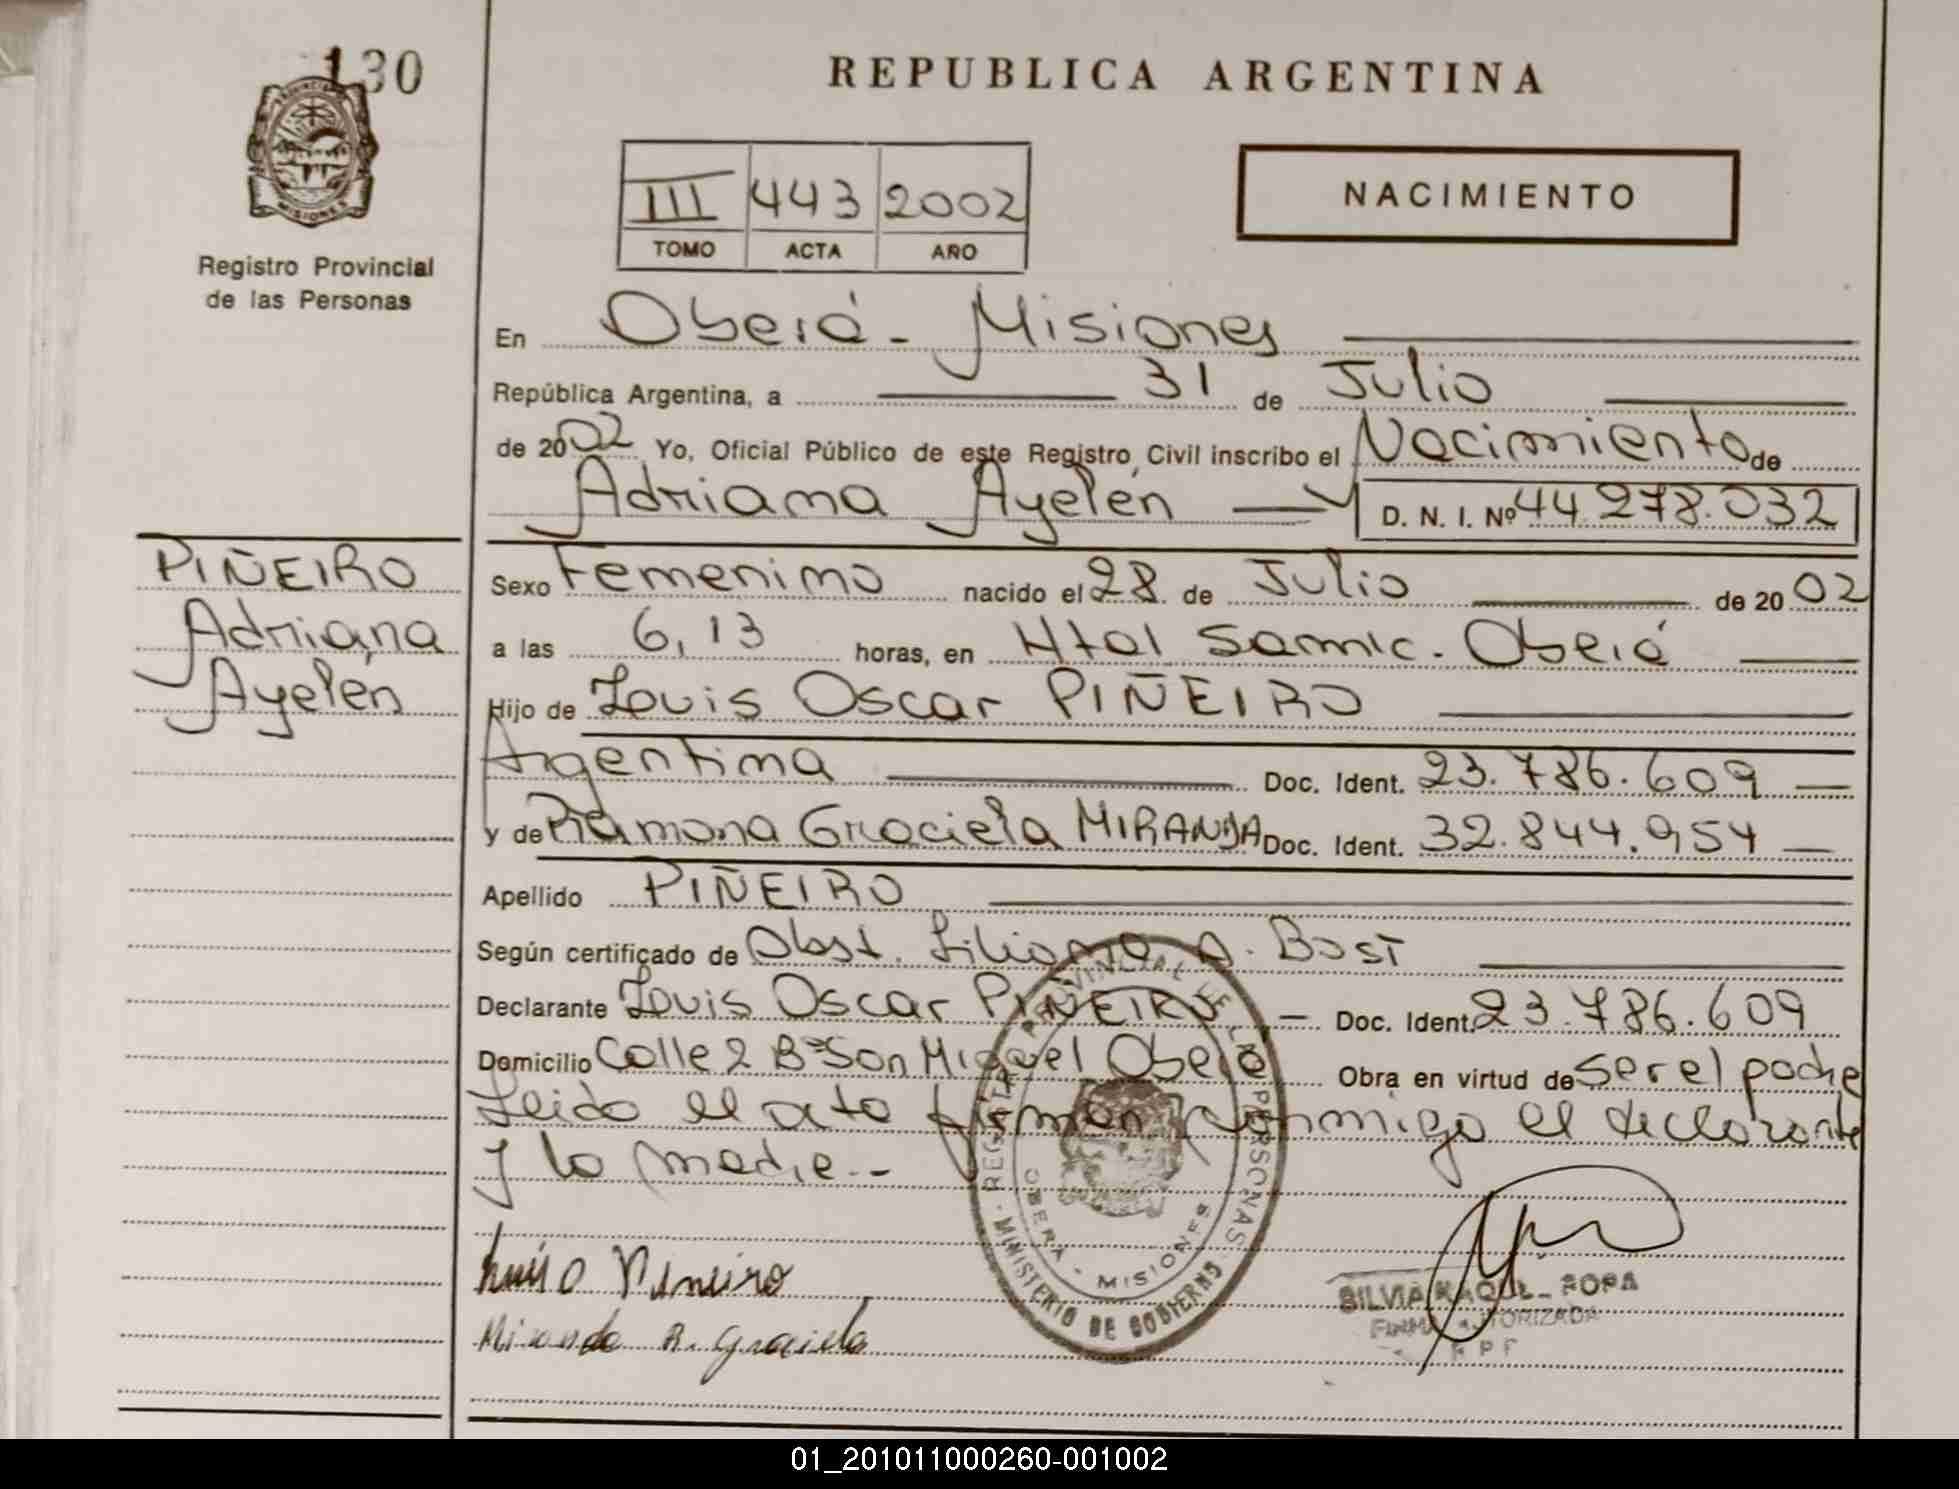 130
PROVINCIA DE
MISIONES
Registro Provincial
de las Personas
REPUBLICA ARGENTINA
III 443 2002
TOMO ACTA AÑO
NACIMIENTO
En Oberá - Misiones
República Argentina, a 31 de Julio
de 2002 Yo, Oficial Público de este Registro Civil inscribo el Nacimiento de
Adriana Ayelén D. N. I. Nº 44.278.032
PIÑEIRO
Adriana
Ayelén
Sexo Femenino nacido el 28 de Julio de 2002
a las 6,13 horas, en Htal Samic. Oberá
Hijo de Louis Oscar PIÑEIRO
Argentina Doc. Ident. 23.786.609
y de Ramona Graciela MIRANDA Doc. Ident. 32.844.954
Apellido PIÑEIRO
Según certificado de Obst. Liliana A. Bost
Declarante Louis Oscar PIÑEIRO - Doc. Ident. 23.786.609
Domicilio Calle 2 Bº San Miguel Oberá Obra en virtud de ser el padre
Leido el acta firman conmigo el declarante
y la madre.-
REGISTRO PROVINCIAL DE LAS PERSONAS
OBERA - MISIONES
- MINISTERIO DE GOBIERNO -
Pineiro
Miranda R. Graciela
SILVIA RAQUEL
FIRMA AUTORIZADA
01_201011000260-001002